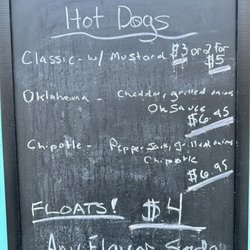 Hot Dogs
Classic - w/ Mustard $3 or 2 for
$5
Oklahoma - Cheddar, grilled onions
Ok Sauce
$6.95
Chipotle - Pepper Jack, grilled onions
Chipotle
$6.95
FLOATS! $4
Any Flavor Soda